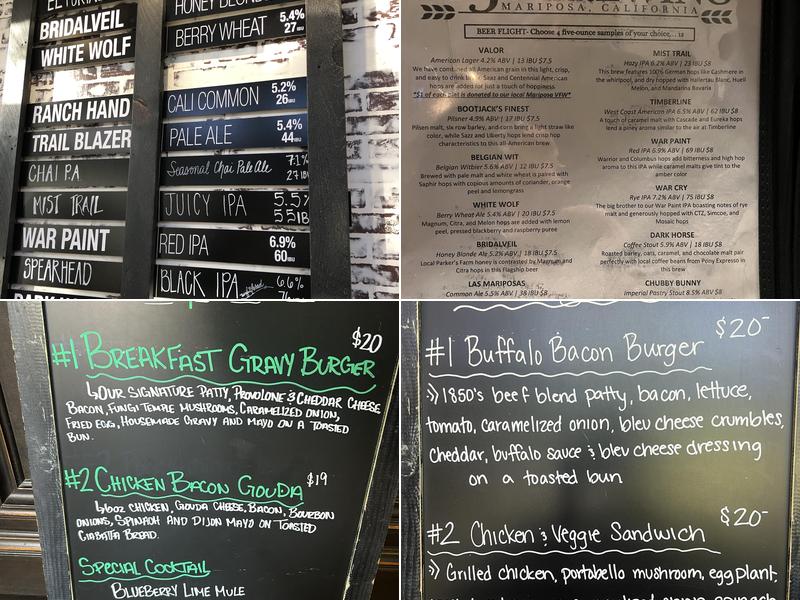 BRIDALVEIL
WHITE WOLF
RANCH HAND
TRAIL BLAZER
CHAI P.A
MIST TRAIL
WAR PAINT
SPEARHEAD
HONEY BLONDE
BERRY WHEAT 5.4% 27 IBU
CALI COMMON 5.2% 26 IBU
PALE ALE 5.4% 44 IBU
Seasonal Chai Pale Ale 7.1% 27 IB
JUICY IPA 5.5% 55 IB
RED IPA 6.9% 60 IBU
BLACK IPA 6.6%
MARIPOSA, CALIFORNIA
BEER FLIGHT- Choose 4 five-ounce samples of your choice... 12
VALOR
American Lager 4.2% ABV | 13 IBU $7.5
We have combined all American grain in this light, crisp,
and easy to drink beer. Saaz and Centennial American
hops are added for just a touch of hoppiness.
*$1 of each pint is donated to our local Mariposa VFW*
BOOTJACK'S FINEST
Pilsner 4.9% ABV | 17 IBU $7.5
Pilsen malt, six row barley, and corn bring a light straw like
color, while Saaz and Liberty hops lend crisp hop
characteristics to this all-American brew
BELGIAN WIT
Belgian Witbier 5.6% ABV | 12 IBU $7.5
Brewed with pale malt and white wheat is paired with
Saphir hops with copious amounts of coriander, orange
peel and lemongrass
WHITE WOLF
Berry Wheat Ale 5.4% ABV | 20 IBU $7.5
Magnum, Citra, and Melon hops are added with lemon
peel, pressed blackberry and raspberry puree
BRIDALVEIL
Honey Blonde Ale 5.2% ABV | 18 IBU $7.5
Local Parker's Farm honey is contrasted by Magnum and
Citra hops in this flagship beer
LAS MARIPOSAS
Common Ale 5.5% ABV | 38 IBU $8
MIST TRAIL
Hazy IPA 6.2% ABV | 23 IBU $8
This brew features 100% German hops like Cashmere in
the whirlpool, and dry hopped with Hallertau Blanc, Huell
Melon, and Mandarina Bavaria
TIMBERLINE
West Coast American IPA 6.5% ABV | 62 IBU $8
A touch of caramel malt with Cascade and Eureka hops
lend a piney aroma similar to the air at Timberline
WAR PAINT
Red IPA 6.9% ABV | 69 IBU $8
Warrior and Columbus hops add bitterness and high hop
aroma to this IPA while caramel malts give tint to the
amber color
WAR CRY
Rye IPA 7.2% ABV | 75 IBU $8
The big brother to our War Paint IPA boasting notes of rye
malt and generously hopped with CTZ, Simcoe, and
Mosaic hops
DARK HORSE
Coffee Stout 5.9% ABV | 18 IBU $8
Roasted barley, oats, caramel, and chocolate malt pair
perfectly with local coffee beans from Pony Expresso in
this brew
CHUBBY BUNNY
Imperial Pastry Stout 8.5% ABV $8
#1 BREAKFAST GRAVY BURGER $20
↳OUR SIGNATURE PATTY, PROVOLONE & CHEDDAR CHEESE
BACON, FUNGI TEMPLE MUSHROOMS, CARAMELIZED ONION,
FRIED EGG, HOUSEMADE GRAVY AND MAYO ON A TOASTED
BUN.
#2 CHICKEN BACON GOUDA $19
↳6OZ CHICKEN, GOUDA CHEESE, BACON, BOURBON
ONIONS, SPINACH AND DIJON MAYO ON TOASTED
CIABATTA BREAD.
SPECIAL COCKTAIL
BLUEBERRY LIME MULE
#1 Buffalo Bacon Burger $20-
» 1850's beef blend patty, bacon, lettuce,
tomato, caramelized onion, bleu cheese crumbles,
cheddar, buffalo sauce & bleu cheese dressing
on a toasted bun
#2 Chicken & Veggie Sandwich $20-
» Grilled chicken, portabello mushroom, eggplant,